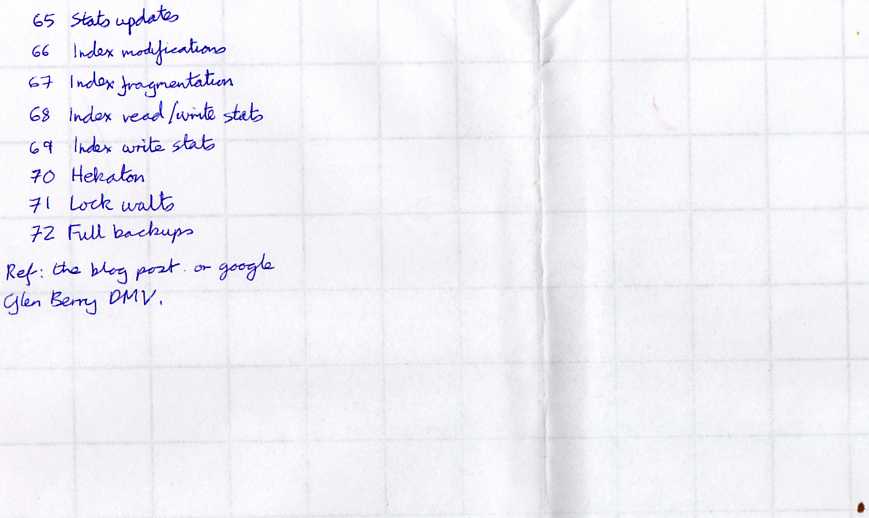 65 Stats updates
66 Index modifications
67 Index fragmentation
68 Index read/write stats
69 Index write stats
70 Hekaton
71 Lock waits
72 Full backups
Ref: the blog post. or google
Glen Berry DMV.